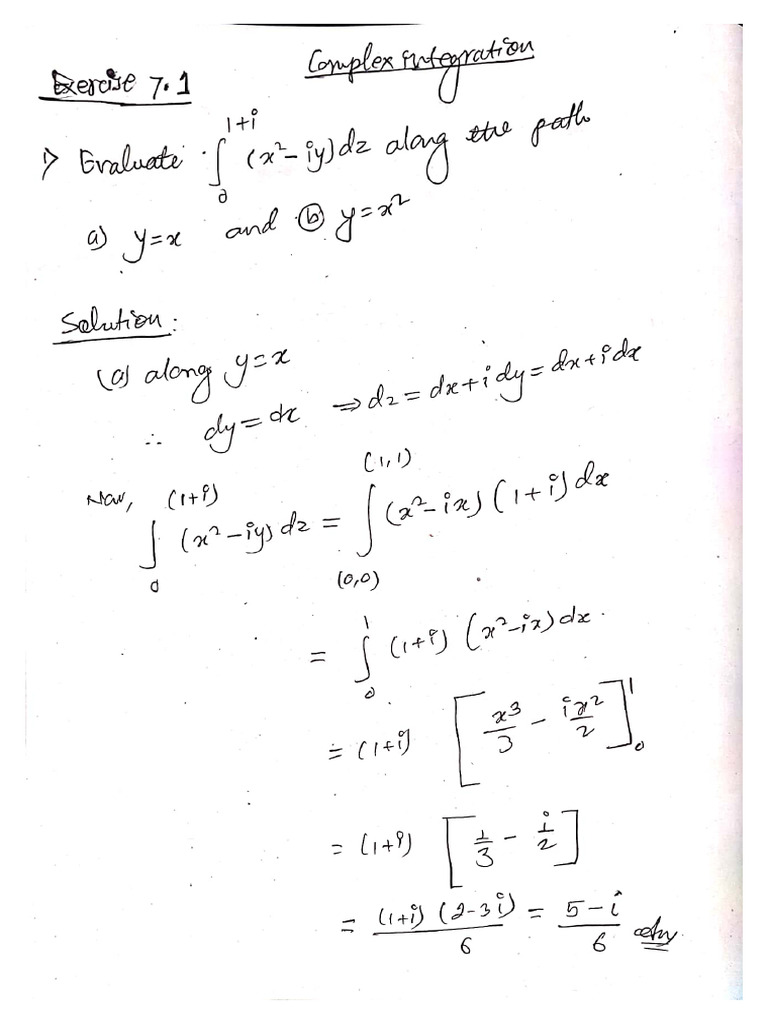 Complex integration
Exercise 7.1
1> Evaluate ∫₀^{1+i} (x² - iy) dz along the path
a) y = x and ⓑ y = x²
Solution:
(a) along y = x
∴ dy = dx ⇒ dz = dx + i dy = dx + i dx
Now, ∫₀^{(1+i)} (x² - iy) dz = ∫_{(0,0)}^{(1,1)} (x² - ix) (1+i) dx
= ∫₀¹ (1+i) (x² - ix) dx.
= (1+i) [x³/3 - ix²/2]₀¹
= (1+i) [1/3 - i/2]
= (1+i) (2-3i)/6 = 5-i/6